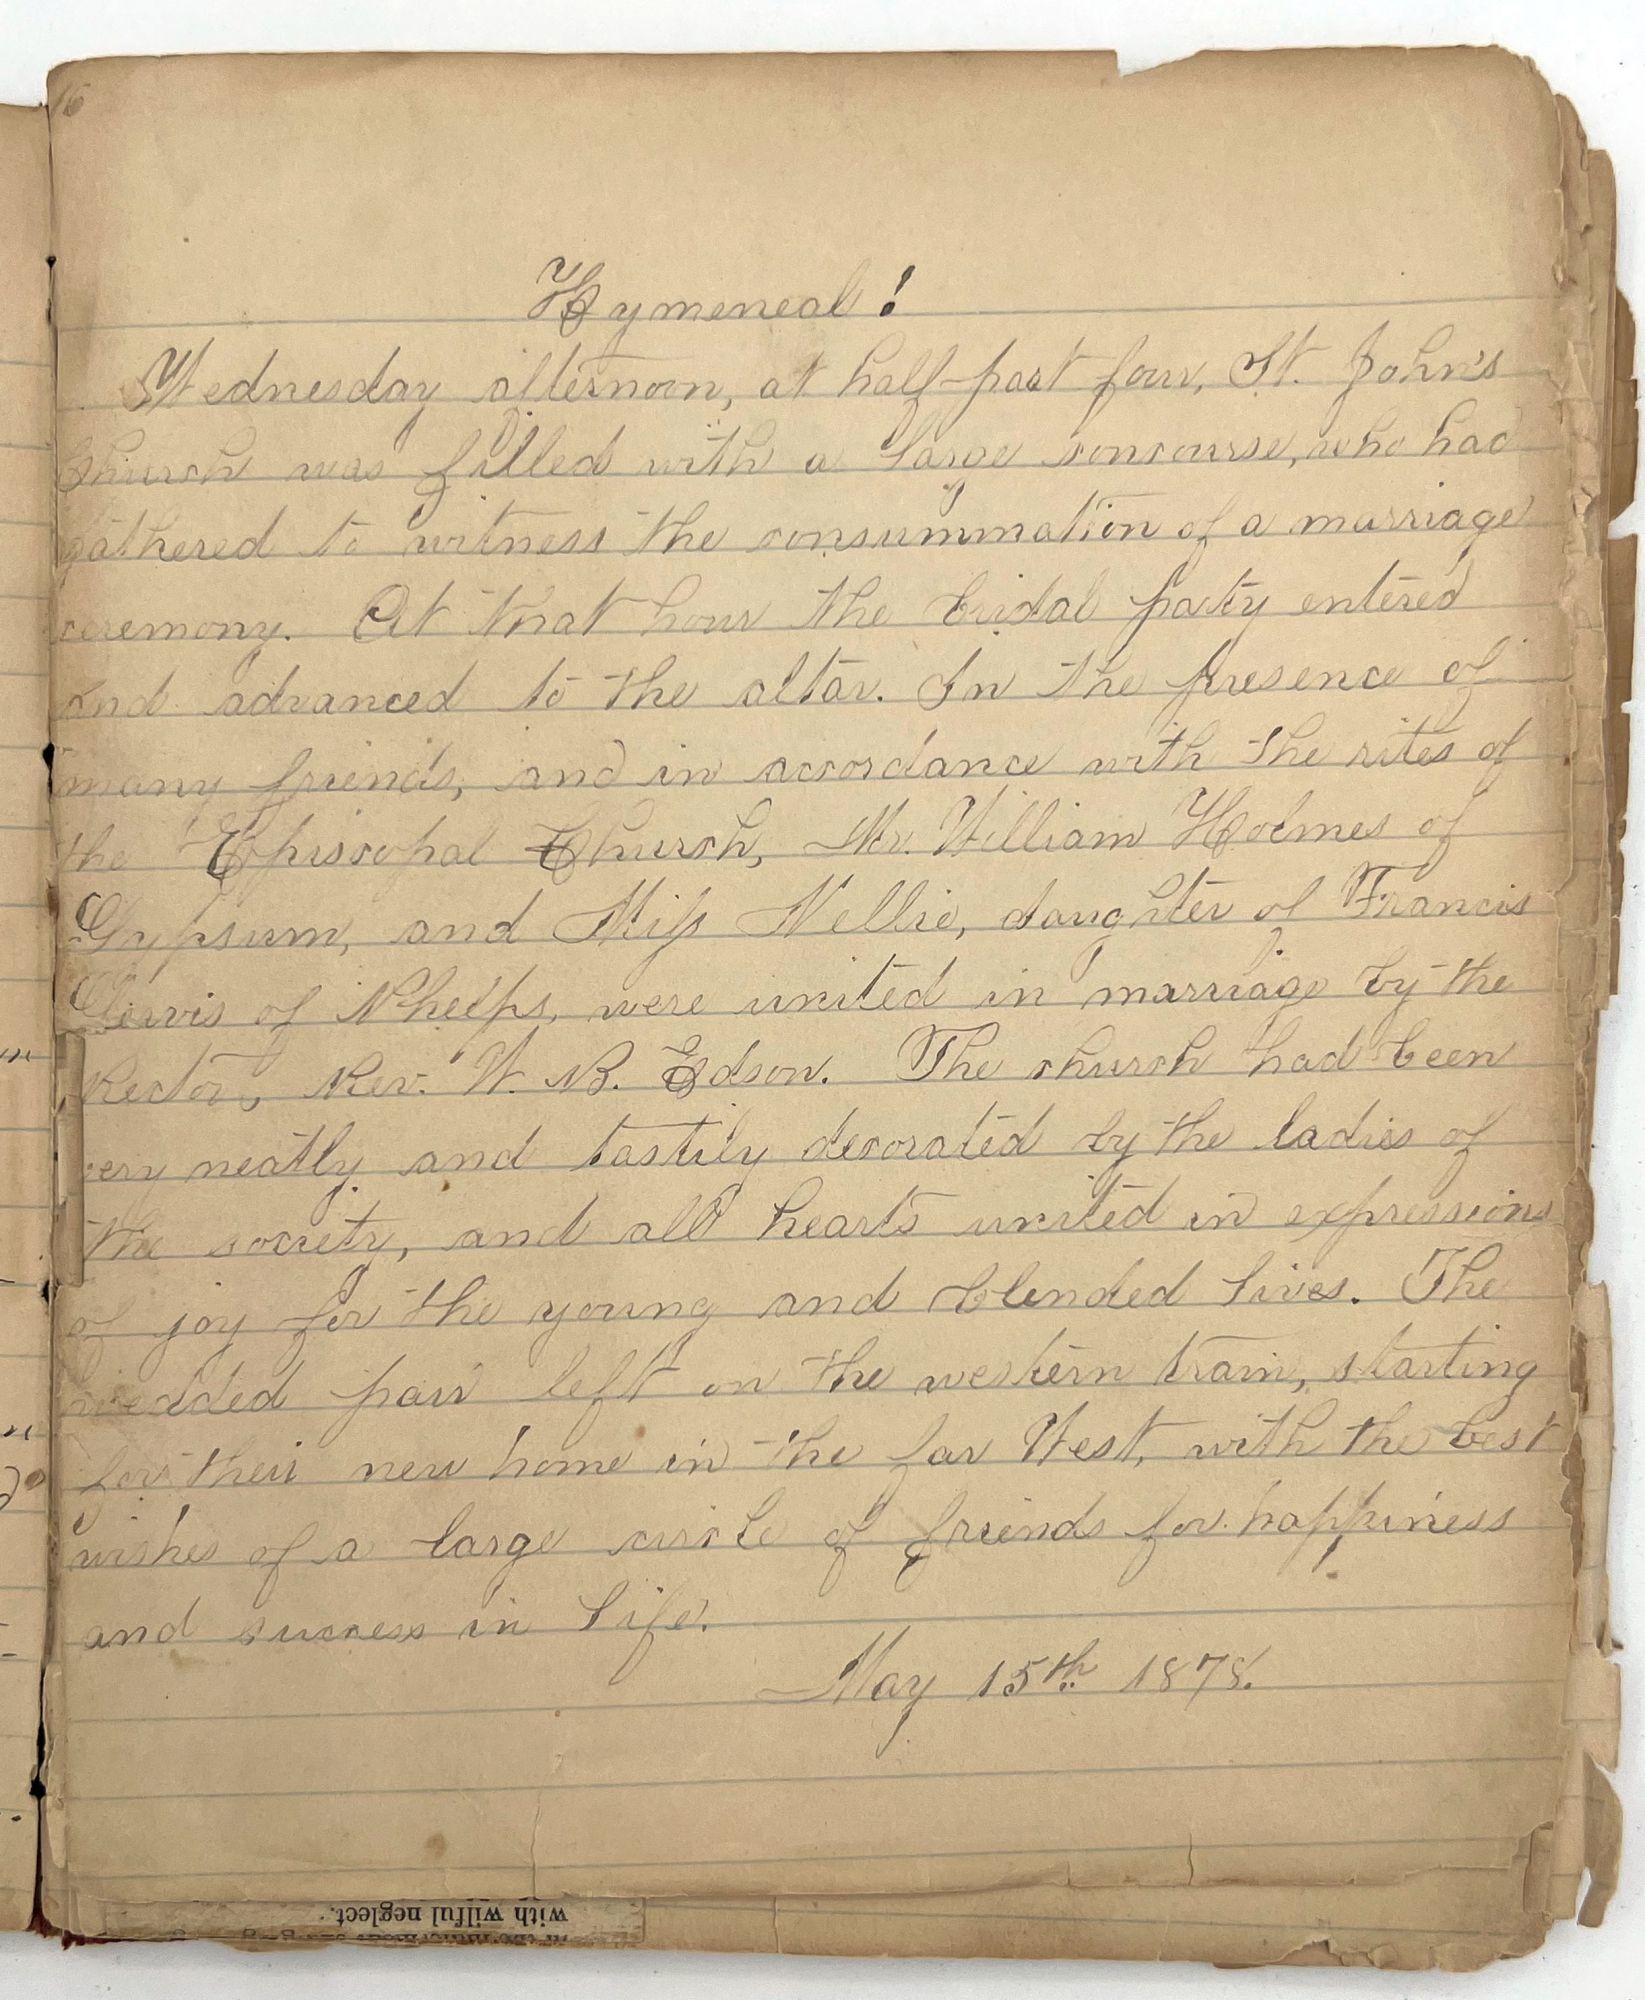 16
Hymeneal!
Wednesday afternoon, at half-past four, St. John's
Church was filled with a large concourse, who had
gathered to witness the consummation of a marriage
ceremony. At that hour the bridal party entered
and advanced to the altar. In the presence of
many friends, and in accordance with the rites of
the Episcopal Church, Mr. William Holmes of
Gypsum, and Miss Nellie, daughter of Francis
of Phelps, were united in marriage by the
Rector, Rev. W. B. Edson. The church had been
very neatly and tastily decorated by the ladies of
the society, and all hearts united in expressions
of joy for the young and blended lives. The
wedded pair left on the western train, starting
for their new home in the far West, with the best
wishes of a large circle of friends for happiness
and success in life.
May 15th 1878.
with wilful neglect.